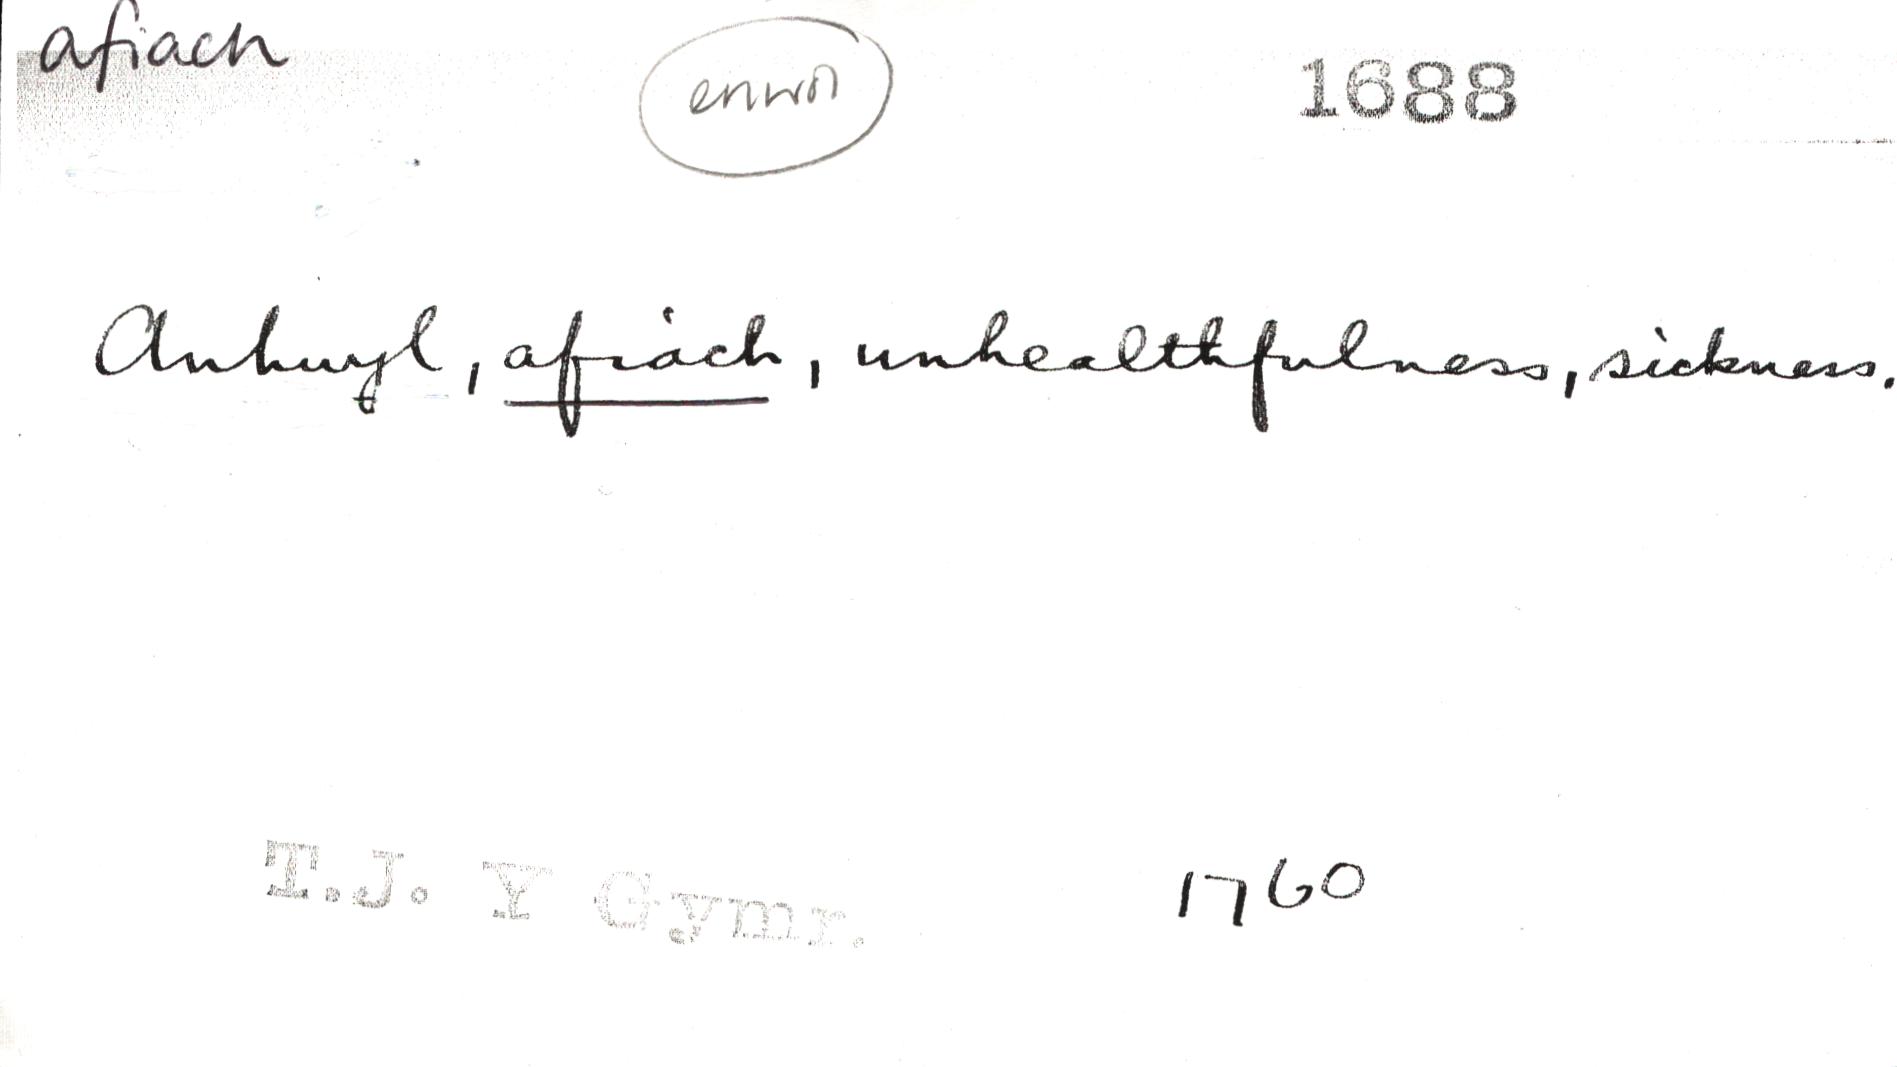 afiach
1688
Anhwyl, afiach, unhealthfulness, sickness.
T.J. Y Gymr. 1760